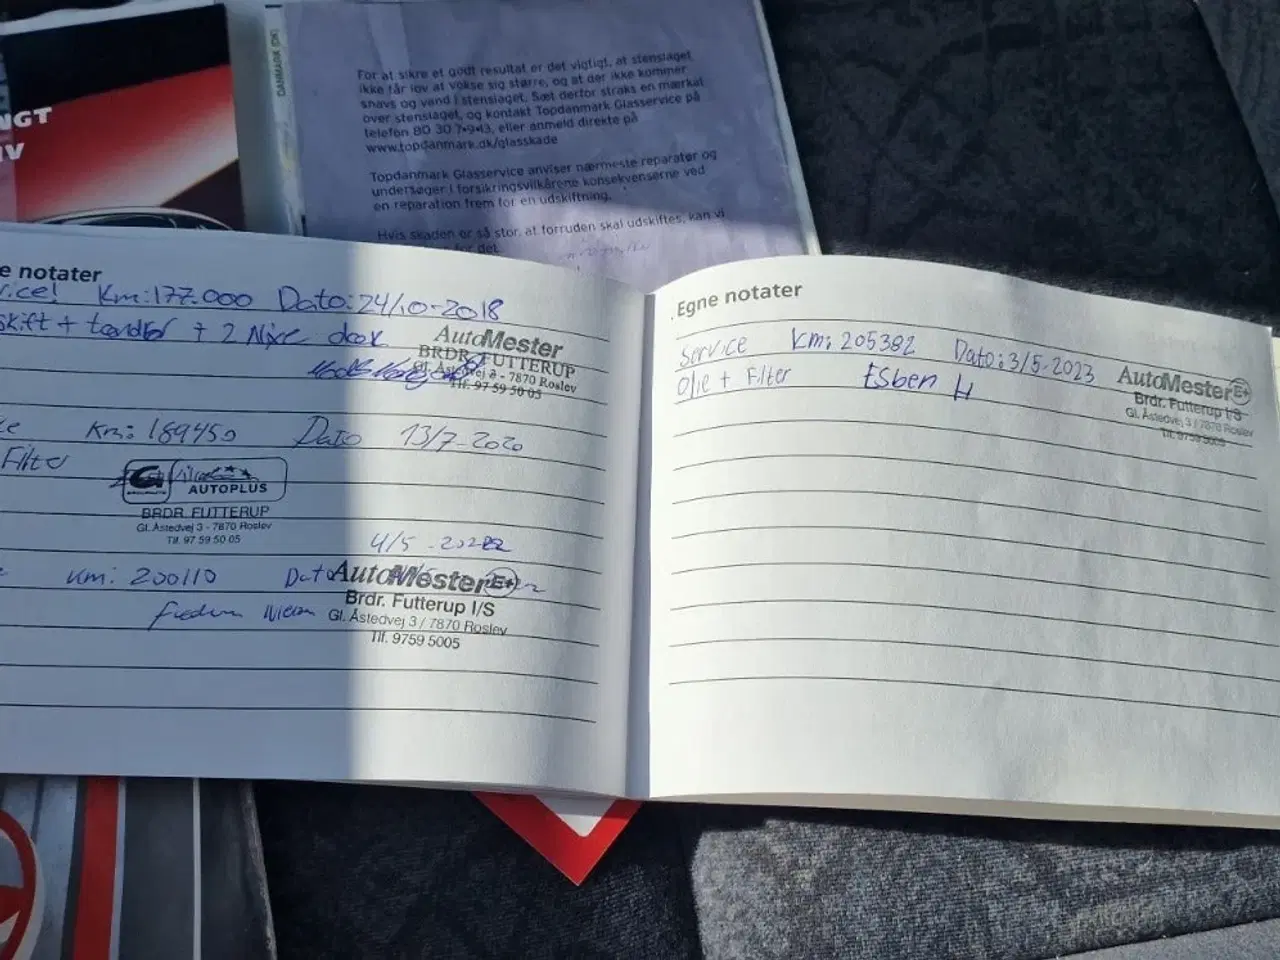 NGT
IV
DANMARK (DK)
For at sikre et godt resultat er det vigtigt, at stenslaget
ikke får lov at vokse sig større, og at der ikke kommer
snavs og vand i stenslaget. Sæt derfor straks en mærkat
over stenslaget, og kontakt Topdanmark Glasservice på
telefon 80 30 7•9•13, eller anmeld direkte på
www.topdanmark.dk/glasskade
Topdanmark Glasservice anviser nærmeste reparatør og
undersøger i forsikringsvilkårene konsekvenserne ved
en reparation frem for en udskiftning.
Hvis skaden er så stor, at forruden skal udskiftes, kan vi
for det.
e notater
rice! Km: 177.000 Dato: 24/10-2018
skift + tændrør + 2 Nye dæk
AutoMester
BRDR. FUTTERUP
Gl. Åstedvej 3 - 7870 Roslev
Tlf. 97 59 50 05
ce Km: 189450 Dato 13/7-2020
Filter
AUTOPLUS
BRDR. FUTTERUP
Gl. Åstedvej 3 - 7870 Roslev
Tlf. 97 59 50 05
4/5-2022
Km: 200110 Dato
AutoMester E+
Brdr. Futterup I/S
Gl. Åstedvej 3 / 7870 Roslev
Tlf. 9759 5005
Egne notater
Service Km: 205382 Dato: 3/5-2023
Olie + Filter Esben H
AutoMester E+
Brdr. Futterup I/S
Gl. Åstedvej 3 / 7870 Roslev
Tlf. 9759 5005